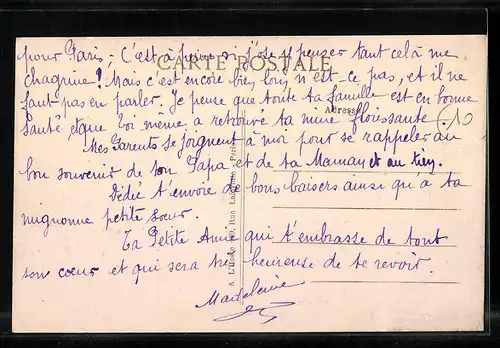 pour Paris, C'est à peine si j'ose y penser tant cela me
CARTE POSTALE
chagrine! Mais c'est encore bien loin n'est-ce pas, et il ne
faut pas en parler. Je pense que toute ta famille est en bonne
Adresse
santé, et que toi même a retrouvé ta mine floissante
10
Mes Parents se joignent à moi pour se rappeler au
bon souvenir de ton Papa et de ta Maman et au tien.
Dédé t'envoie de bons baisers ainsi qu'à ta
mignonne petite sœur.
Ta Petite Amie qui t'embrasse de tout
son cœur et qui sera très heureuse de te revoir.
Madeleine
Paris